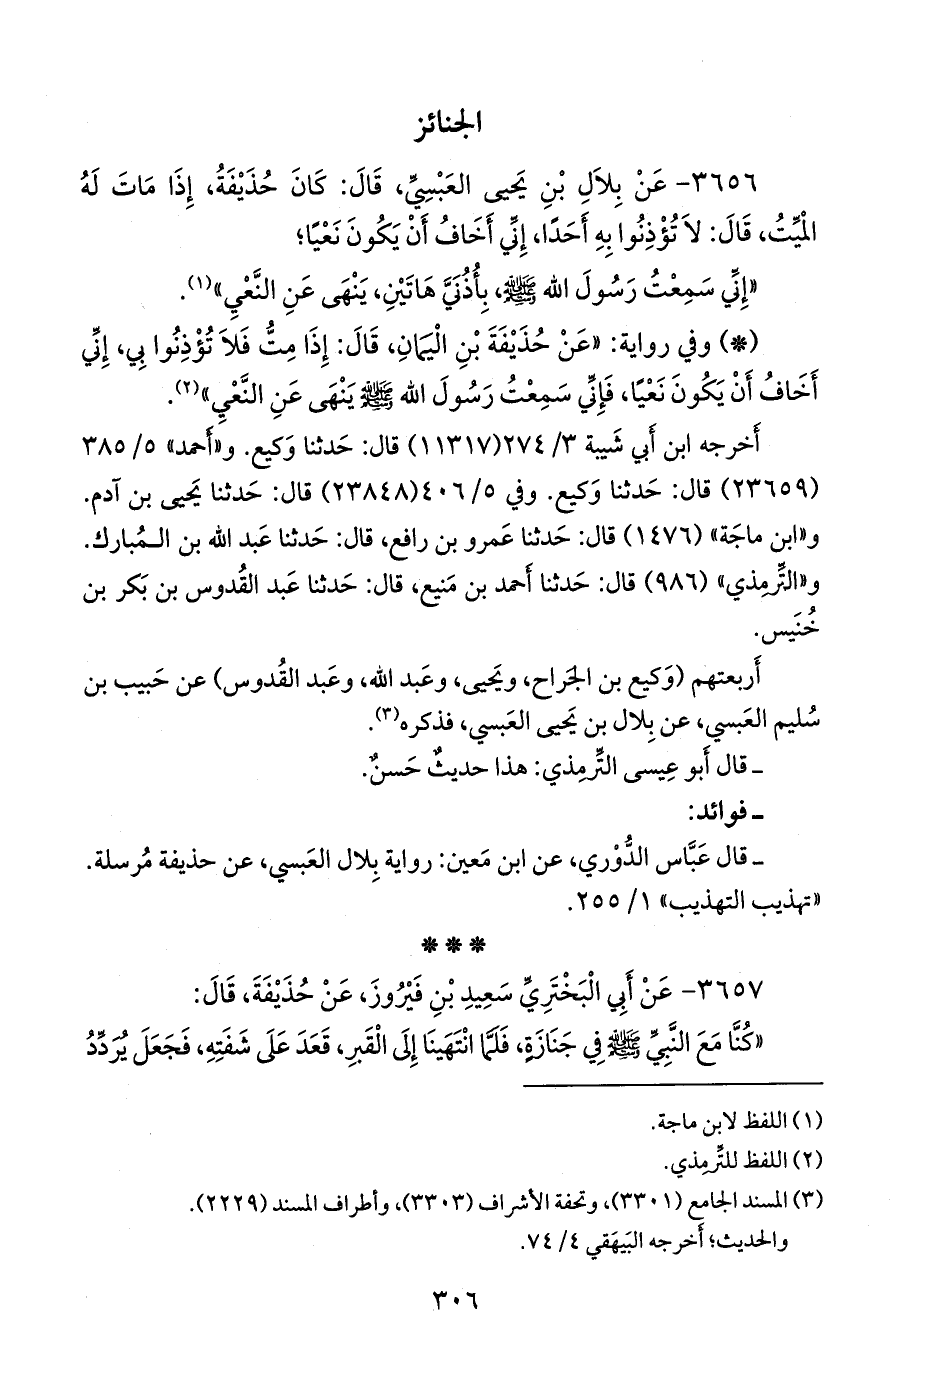 الجنائز
٣٦٥٦- عَنْ بِلاَلِ بْنِ يَحيى العَبْسِيِّ، قَالَ: كَانَ حُذَيْفَةُ، إِذَا مَاتَ لَهُ
المْيِّتُ، قَالَ: لاَ تُؤْذِنُوا بِهِ أَحَدًا، إِنِّي أَخَافُ أَنْ يَكُونَ نَعْيًا؛
«إِنِّي سَمِعْتُ رَسُولَ الله ﷺ، بِأُذُنَيَّ هَاتَيْنِ، يَنْهَى عَنِ النَّعْيِ»(١).
(*) وفي رواية: «عَنْ حُذَيْفَةَ بْنِ الْيَمانِ، قَالَ: إِذَا مِتُّ فَلاَ تُؤْذِنُوا بِي، إِنِّي
أَخَافُ أَنْ يَكُونَ نَعْيًا، فَإِنِّي سَمِعْتُ رَسُولَ الله ﷺ يَنْهَى عَنِ النَّعْيِ»(٢).
أَخرجه ابن أَبي شَيبة ٣/ ٢٧٤(١١٣١٧) قال: حَدثنا وَكيع. و«أَحمد» ٥/ ٣٨٥
(٢٣٦٥٩) قال: حَدثنا وَكيع. وفي ٥/ ٤٠٦(٢٣٨٤٨) قال: حَدثنا يَحيى بن آدم.
و«ابن ماجَة» (١٤٧٦) قال: حَدثنا عَمرو بن رافع، قال: حَدثنا عَبد الله بن الـمُبارك.
و«التِّرمِذي» (٩٨٦) قال: حَدثنا أَحمد بن مَنيع، قال: حَدثنا عَبد القُدوس بن بَكر بن
خُنَيس.
أَربعتهم (وَكيع بن الجَراح، ويَحيى، وعَبد الله، وعَبد القُدوس) عن حَبيب بن
سُليم العَبسي، عن بِلال بن يَحيى العَبسي، فذكره(٣).
ـ قال أَبو عِيسى التِّرمِذي: هذا حديثٌ حَسنٌ.
ـ فوائد:
ـ قال عَبَّاس الدُّوْري، عن ابن مَعين: رواية بِلال العَبسي، عن حذيفة مُرسلة.
«تهذيب التهذيب» ١/ ٢٥٥.
***
٣٦٥٧- عَنْ أَبِي الْبَخْتَرِيِّ سَعِيدِ بْنِ فَيْرُوزَ، عَنْ حُذَيْفَةَ، قَالَ:
«كُنَّا مَعَ النَّبِيِّ ﷺ فِي جَنَازَةٍ، فَلَمَّا انْتَهَيْنَا إِلَى الْقَبرِ، قَعَدَ عَلَى شَفَتِهِ، فَجَعَلَ يُرَدِّدُ
(١) اللفظ لابن ماجة.
(٢) اللفظ للتِّرمِذي.
(٣) المسند الجامع (٣٣٠١)، وتحفة الأشراف (٣٣٠٣)، وأطراف المسند (٢٢٢٩).
والحديث؛ أَخرجه البَيهَقي ٤/ ٧٤.
٣٠٦